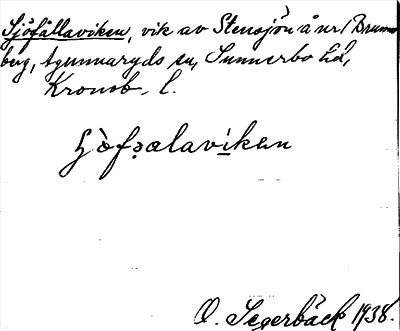 Sjöfållaviken, vik av Stensjön å nr 1 Brunns-
berg, Agunnaryds sn, Sunnerbo hd,
Kronob. l.
Ὼfəalavíkən
O. Segerbäck 1938.